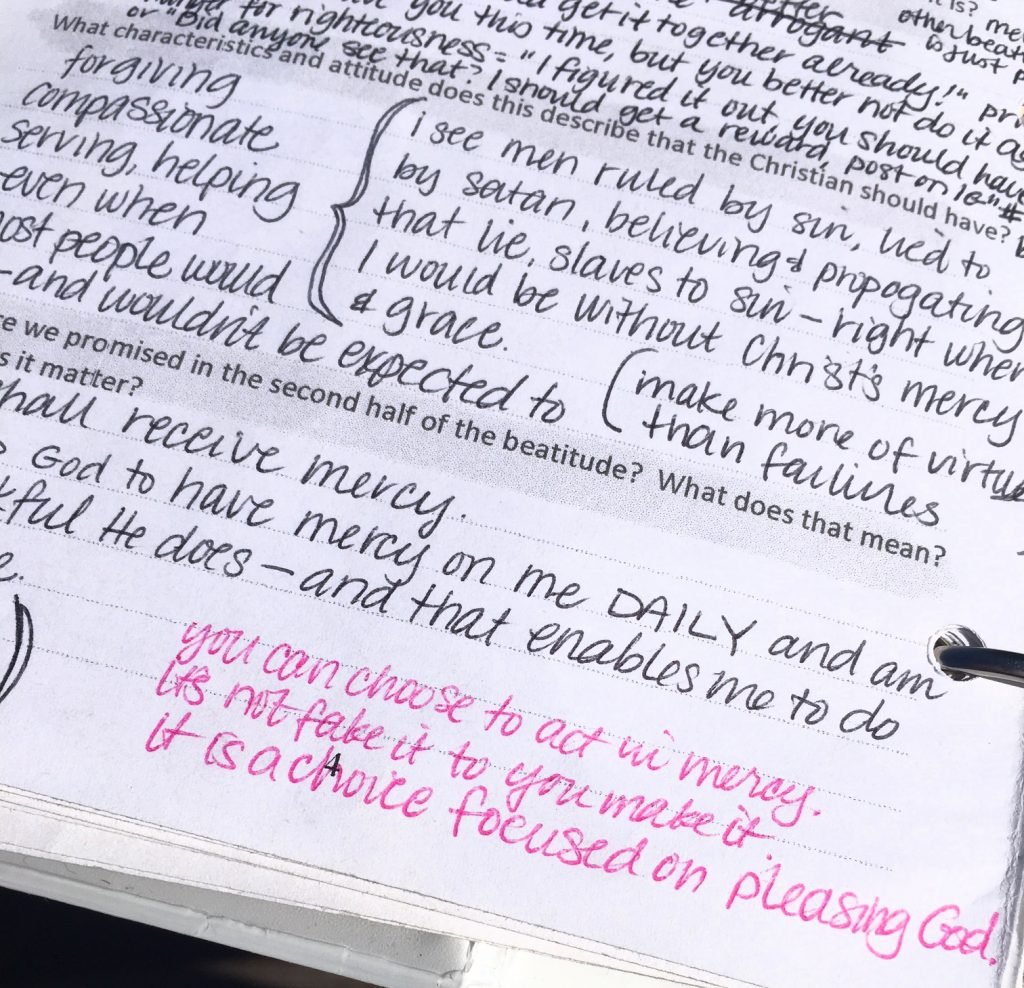 you this time, but you better not do it
get it together already!"
for righteousness = "I figured it out you should have
or "Did anyone see that? I should get a reward, post on
arrogant
is?
other beat
to just
What characteristics and attitude does this describe that the Christian should have?
forgiving
compassionate
serving, helping
-even when
most people would
-and wouldn't be expected to
i see men ruled by sin, lied to
by satan, believing & propogating
that lie, slaves to sin - right where
I would be without Christ's mercy
& grace.
make more of virtue
than failures
re we promised in the second half of the beatitude? What does that mean?
s it matter?
hall receive mercy.
God to have mercy on me DAILY and am
kful He does - and that enables me to do
e.
you can choose to act in mercy.
its not fake it to you make it.
it is a choice focused on pleasing God.
4